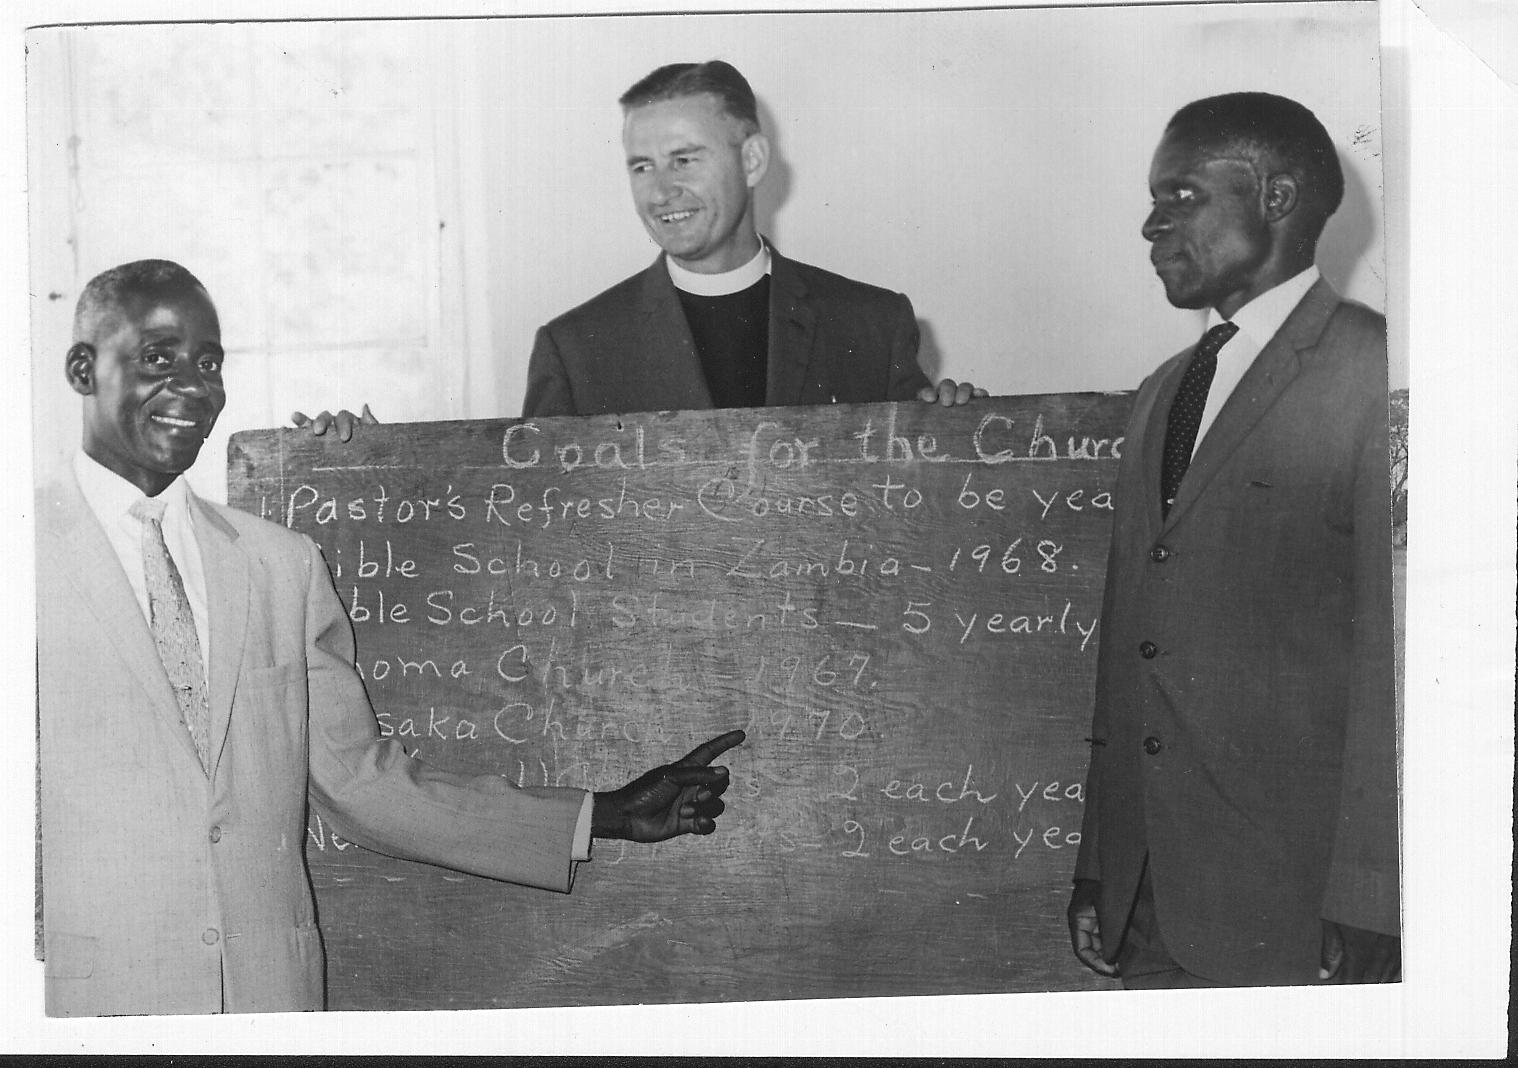 Goals for the Churc
1. Pastor's Refresher Course to be yea
ible School in Zambia - 1968.
ble School Students - 5 yearly
oma Church - 1967.
saka Church 1970.
s - 2 each yea
s - 2 each yea